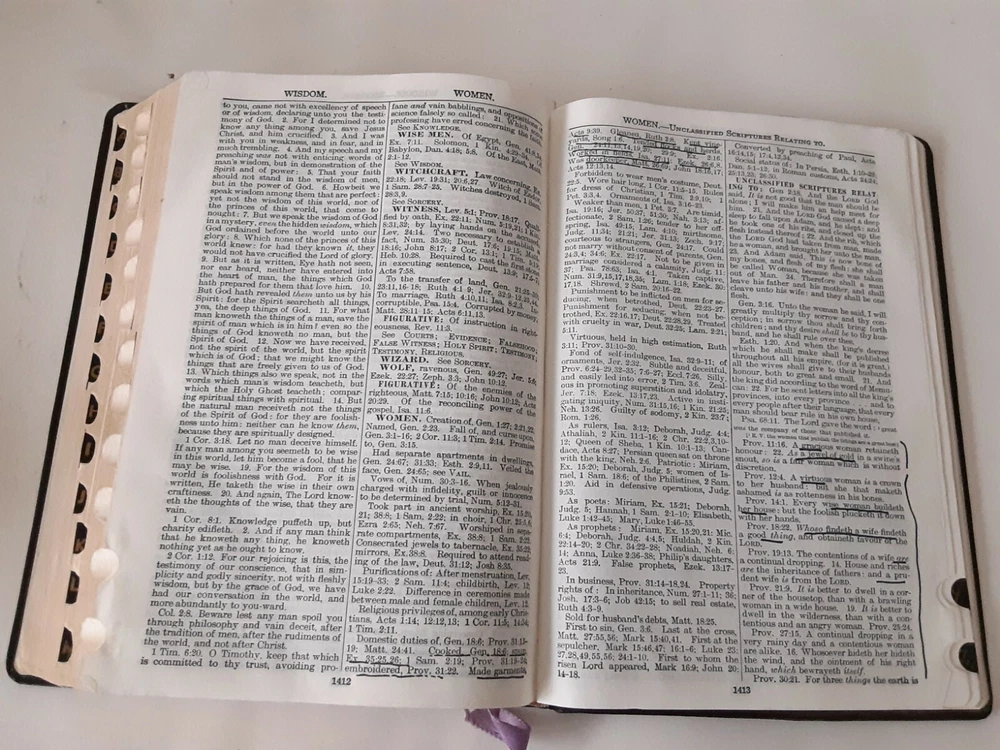 WISDOM. WOMEN.
to you, came not with excellency of speech
or of wisdom, declaring unto you the testi-
mony of God. 2. For I determined not to
know any thing among you, save Jesus
Christ, and him crucified. 3. And I was
with you in weakness, and in fear, and in
much trembling. 4. And my speech and my
preaching was not with enticing words of
man's wisdom, but in demonstration of the
Spirit and of power: 5. That your faith
should not stand in the wisdom of men,
but in the power of God. 6. Howbeit we
speak wisdom among them that are perfect:
yet not the wisdom of this world, nor of
the princes of this world, that come to
nought: 7. But we speak the wisdom of God
in a mystery, even the hidden wisdom, which
God ordained before the world unto our
glory: 8. Which none of the princes of this
world knew: for had they known it, they
would not have crucified the Lord of glory.
9. But as it is written, Eye hath not seen,
nor ear heard, neither have entered into
the heart of man, the things which God
hath prepared for them that love him. 10.
But God hath revealed them unto us by his
Spirit: for the Spirit searcheth all things,
yea, the deep things of God. 11. For what
man knoweth the things of a man, save the
spirit of man which is in him? even so the
things of God knoweth no man, but the
Spirit of God. 12. Now we have received,
not the spirit of the world, but the spirit
which is of God; that we might know the
things that are freely given to us of God.
13. Which things also we speak, not in the
words which man's wisdom teacheth, but
which the Holy Ghost teacheth; compar-
ing spiritual things with spiritual. 14. But
the natural man receiveth not the things
of the Spirit of God: for they are foolish-
ness unto him: neither can he know them,
because they are spiritually designed.
1 Cor. 3:18. Let no man deceive himself.
If any man among you seemeth to be wise
in this world, let him become a fool, that he
may be wise. 19. For the wisdom of this
world is foolishness with God. For it is
written, He taketh the wise in their own
craftiness. 20. And again, The Lord know-
eth the thoughts of the wise, that they are
vain.
1 Cor. 8:1. Knowledge puffeth up, but
charity edifieth. 2. And if any man think
that he knoweth any thing, he knoweth
nothing yet as he ought to know.
2 Cor. 1:12. For our rejoicing is this, the
testimony of our conscience, that in sim-
plicity and godly sincerity, not with fleshly
wisdom, but by the grace of God, we have
had our conversation in the world, and
more abundantly to you-ward.
Col. 2:8. Beware lest any man spoil you
through philosophy and vain deceit, after
the tradition of men, after the rudiments of
the world, and not after Christ.
1 Tim. 6:20. O Timothy, keep that which
is committed to thy trust, avoiding pro-
fane and vain babblings, and oppositions of
science falsely so called: 21. Which some
professing have erred concerning the
See KNOWLEDGE.
WISE MEN. Of Egypt, Gen. 41:8,24
Ex. 7:11. Solomon, 1 Kin.
Babylon, Dan. 4:18; 5:8. Of the East, M
2:1-12.
See WISDOM.
WITCHCRAFT, Law concerning, Ex.
22:18; Lev. 19:31; 20:6,27. Witch of Endor,
1 Sam. 28:7-25. Witches destroyed,
28:3,9.
See SORCERY.
WITNESS, Lev. 5:1; Prov. 18:17. Quali-
fied by oath, Ex. 22:11; Num.
8:31,32; by laying hands on the accused,
Lev. 24:14. Two necessary to establish a
fact, Num. 35:30; Deut. 17:6; 19:15; Matt.
18:16; John 8:17; 2 Cor. 13:1; 1 Tim.
Heb. 10:28. Required to cast the first stone
in executing sentence, Deut. 13:9; 17:
Acts 7:58.
To the transfer of land, Gen. 21:25-30;
23:11,16-18; Ruth 4:1-9; Jer. 32:9-12,25,44.
To marriage, Ruth 4:10,11; Isa. 8:2,3. In-
corruptible, Psa. 15:4. Corrupted by money,
Matt. 28:11-15; Acts 6:11,13.
FIGURATIVE: Of instruction in right-
eousness, Rev. 11:3.
See COURTS; EVIDENCE; FALSEHOOD;
FALSE WITNESS; HOLY SPIRIT; TESTIMONY;
TESTIMONY, RELIGIOUS.
WIZARD. See SORCERY.
WOLF, ravenous, Gen. 49:27; Jer. 5:6;
Ezek. 22:27; Zeph. 3:3; John 10:12.
FIGURATIVE: Of the enemies of the
righteous, Matt. 7:15; 10:16; John 10:12; Acts
20:29. Of the reconciling power of the
gospel, Isa. 11:6.
WOMEN. Creation of, Gen. 1:27; 2:21,22.
Named, Gen. 2:23. Fall of, and curse upon,
Gen. 3:1-16; 2 Cor. 11:3; 1 Tim. 2:14. Promise
to, Gen. 3:15.
Had separate apartments in dwellings,
Gen. 24:67; 31:33; Esth. 2:9,11. Veiled the
face, Gen. 24:65; see VAIL.
Vows of, Num. 30:3-16. When jealously
charged with infidelity, guilt or innocence
to be determined by trial, Num. 5:12-31.
Took part in ancient worship, Ex. 15:20,
21; 38:8; 1 Sam. 2:22; in choir, 1 Chr. 25:5,6;
Ezra 2:65; Neh. 7:67. Worshiped in sepa-
rate compartments, Ex. 38:8; 1 Sam. 2:22.
Consecrated jewels to tabernacle, Ex. 35:22;
mirrors, Ex. 38:8. Required to attend read-
ing of the law, Deut. 31:12; Josh. 8:35.
Purifications of: After menstruation, Lev.
15:19-33; 2 Sam. 11:4; childbirth, Lev. 12;
Luke 2:22. Difference in ceremonies made
between male and female children, Lev. 12.
Religious privileges of, among early Chris-
tians, Acts 1:14; 12:12,13; 1 Cor. 11:5; 14:34;
1 Tim. 2:11.
Domestic duties of, Gen. 18:6; Prov. 31:15-
19; Matt. 24:41. Cooked, Gen. 18:6; spun,
Ex. 35:25,26; 1 Sam. 2:19; Prov. 31:19-24;
embroidered, Prov. 31:22. Made garments,
1412
WOMEN.—UNCLASSIFIED SCRIPTURES RELATING TO.
Acts 9:39. Gleaned, Ruth 2:8. Kept vine-
yards, Song 1:6.
Ex. 2:16.
Was doorkeeper,
Acts 12:13,14.
Forbidden to wear men's costume, Deut.
22:5. Wore hair long, 1 Cor. 11:5-15. Rules
for dress of Christian, 1 Tim. 2:9,10; 1
Pet. 3:3,4. Ornaments of, Isa. 3:16-23.
Weaker than men, 1 Pet. 3:7. Are timid,
Isa. 19:16; Jer. 50:37; 51:30; Nah. 3:13; af-
fectionate, 2 Sam. 1:26; tender to her off-
spring, Isa. 49:15; Lam. 4:10; mirthsome,
Judg. 11:34; 21:21; Jer. 31:13; Zech. 9:17;
courteous to strangers, Gen. 24:17. Could
not marry without consent of parents, Gen.
24:3,4; 34:6; Ex. 22:17. Not to be given in
marriage considered a calamity, Judg. 11:
37; Psa. 78:63; Isa. 4:1. Taken captive,
Num. 31:9,15,17,18,35; Lam. 1:18; Ezek. 30:
17,18. Shrewd, 2 Sam. 20:16-22.
Punishment to be inflicted on men for se-
ducing, when betrothed, Deut. 22:23-27.
Punishment for seducing, when not be-
trothed, Ex. 22:16,17; Deut. 22:28,29. Treated
with cruelty in war, Deut. 32:25; Lam. 2:21;
5:11.
Virtuous, held in high estimation, Ruth
3:11; Prov. 31:10-30.
Fond of self-indulgence, Isa. 32:9-11; of
ornaments, Jer. 2:32. Subtle and deceitful,
Prov. 6:24-29,32-35; 7:6-27; Eccl. 7:26. Silly,
and easily led into error, 2 Tim. 3:6. Zeal-
ous in promoting superstition and idolatry,
Jer. 7:18; Ezek. 13:17,23. Active in insti-
gating iniquity, Num. 31:15,16; 1 Kin. 21:25;
Neh. 13:26. Guilty of sodomy, 2 Kin. 23:7;
Rom. 1:26.
As rulers, Isa. 3:12; Deborah, Judg. 4:4;
Athaliah, 2 Kin. 11:1-16; 2 Chr. 22:2,3,10-
12; Queen of Sheba, 1 Kin. 10:1-13; Can-
dace, Acts 8:27; Persian queen sat on throne
with the king, Neh. 2:6. Patriotic: Miriam,
Ex. 15:20; Deborah, Judg. 5; women of Is-
rael, 1 Sam. 18:6; of the Philistines, 2 Sam.
1:20. Aid in defensive operations, Judg.
9:53.
As poets: Miriam, Ex. 15:21; Deborah,
Judg. 5; Hannah, 1 Sam. 2:1-10; Elisabeth,
Luke 1:42-45; Mary, Luke 1:46-55.
As prophets: Miriam, Ex. 15:20,21; Mic.
6:4; Deborah, Judg. 4:4,5; Huldah, 2 Kin.
22:14-20; 2 Chr. 34:22-28; Noadiah, Neh. 6:
14; Anna, Luke 2:36-38; Philip's daughters,
Acts 21:9. False prophets, Ezek. 13:17-
23.
In business, Prov. 31:14-18,24. Property
rights of: In inheritance, Num. 27:1-11; 36;
Josh. 17:3-6; Job 42:15; to sell real estate,
Ruth 4:3-9.
Sold for husband's debts, Matt. 18:25.
First to sin, Gen. 3:6. Last at the cross,
Matt. 27:55,56; Mark 15:40,41. First at the
sepulcher, Mark 15:46,47; 16:1-6; Luke 23:
27,28,49,55,56; 24:1-10. First to whom the
risen Lord appeared, Mark 16:9; John 20:
14-18.
Converted by preaching of Paul, Acts
16:14,15; 17:4,12,34.
Social status of: In Persia, Esth. 1:10-22;
Dan. 5:1-12; in Roman empire, Acts 24:24;
25:13,23; 26:30.
UNCLASSIFIED SCRIPTURES RELAT-
ING TO: Gen. 2:18. And the LORD God
said, It is not good that the man should be
alone; I will make him an help meet for
him. 21. And the LORD God caused a deep
sleep to fall upon Adam, and he slept: and
he took one of his ribs, and closed up the
flesh instead thereof; 22. And the rib, which
the LORD God had taken from man, made
he a woman, and brought her unto the man.
23. And Adam said, This is now bone of
my bones, and flesh of my flesh: she shall
be called Woman, because she was taken
out of Man. 24. Therefore shall a man
leave his father and his mother, and shall
cleave unto his wife: and they shall be one
flesh.
Gen. 3:16. Unto the woman he said, I will
greatly multiply thy sorrow and thy con-
ception; in sorrow thou shalt bring forth
children; and thy desire shall be to thy hus-
band, and he shall rule over thee.
Esth. 1:20. And when the king's decree
which he shall make shall be published
throughout all his empire, (for it is great,)
all the wives shall give to their husbands
honour, both to great and small. 21. And
the king did according to the word of Memu-
can: 22. For he sent letters into all the king's
provinces, into every province . . . and to
every people after their language, that every
man should bear rule in his own house,
Psa. 68:11. The Lord gave the word: great
was the company of those that published it.
Prov. 11:16. A gracious woman retaineth
honour: 22. As a jewel of gold in a swine's
snout, so is a fair woman which is without
discretion.
Prov. 12:4. A virtuous woman is a crown
to her husband: but she that maketh
ashamed is as rottenness in his bones.
Prov. 14:1. Every wise woman buildeth
her house: but the foolish plucketh it down
with her hands.
Prov. 18:22. Whoso findeth a wife findeth
a good thing, and obtaineth favour of the
LORD.
Prov. 19:13. The contentions of a wife are
a continual dropping. 14. House and riches
are the inheritance of fathers: and a pru-
dent wife is from the LORD.
Prov. 21:9. It is better to dwell in a cor-
ner of the housetop, than with a brawling
woman in a wide house. 19. It is better to
dwell in the wilderness, than with a con-
tentious and an angry woman. Prov. 25:24.
Prov. 27:15. A continual dropping in a
very rainy day and a contentious woman
are alike. 16. Whosoever hideth her hideth
the wind, and the ointment of his right
hand, which bewrayeth itself.
Prov. 30:21. For three things the earth is
1413